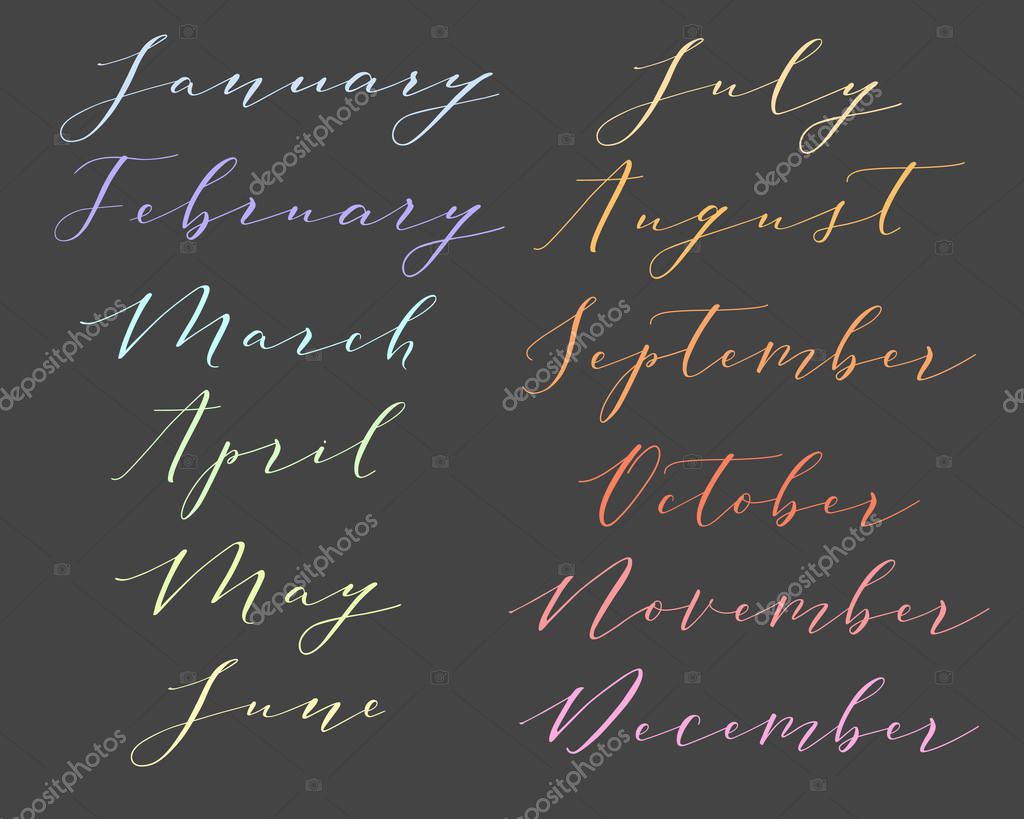 January
February
March
April
May
June
July
August
September
October
November
December
depositphotos
depositphotos
depositphotos
depositphotos
depositphotos
depositphotos
depositphotos
depositphotos
depositphotos